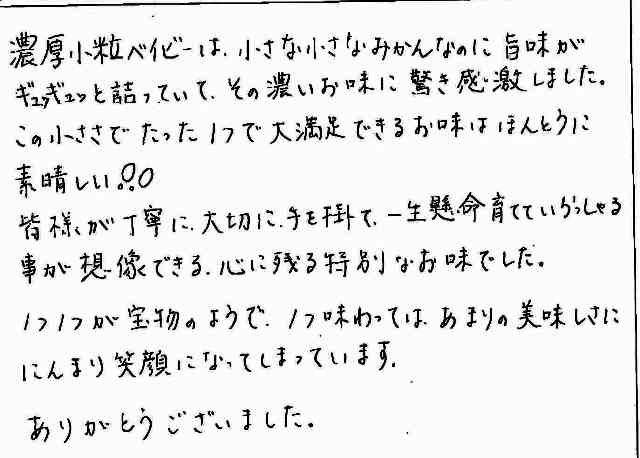 濃厚小粒ベイビーは、小さな小さなみかんなのに旨味が
ギュッギュッと詰っていて、その濃いお味に驚き感激しました。
この小ささでたった1つで大満足できるお味はほんとうに
素晴しい!!
皆様が丁寧に、大切に、手を掛て、一生懸命育てていらっしゃる
事が想像できる、心に残る特別なお味でした。
1つ1つが宝物のようで、1つ味わっては、あまりの美味しさに
にんまり笑顔になってしまっています。
ありがとうございました。